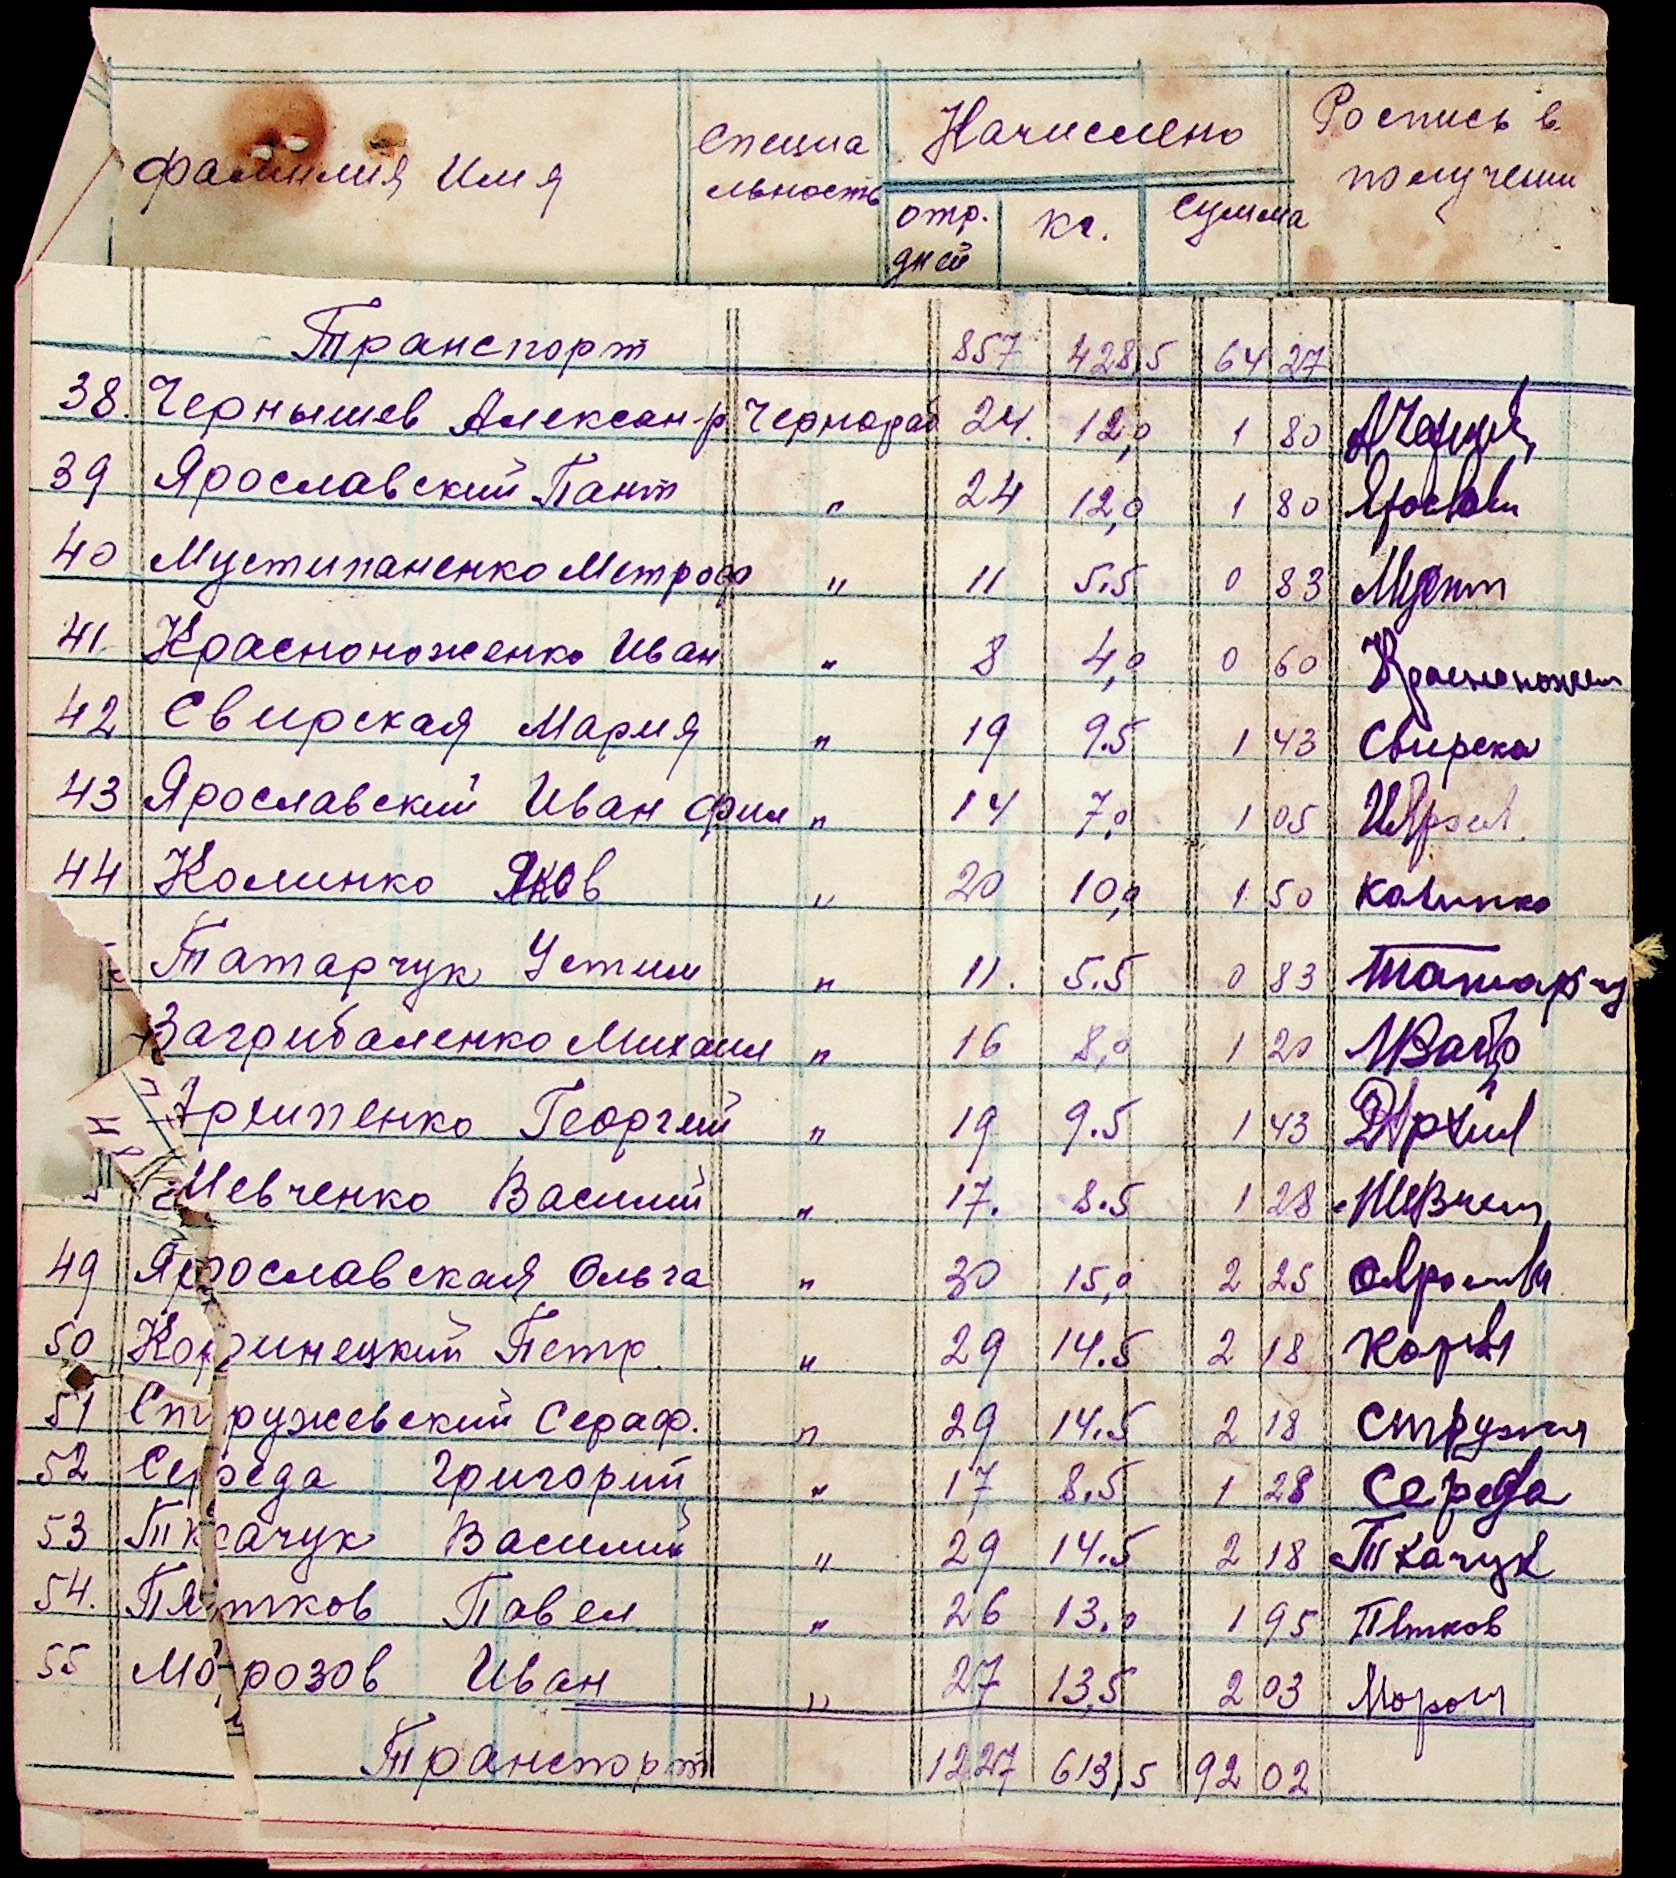 Фамилия Имя Специальность Начислено Роспись в получении
отр. дней кг. Сумма
Транспорт 857 428,5 64 27
38. Чернышев Алексан-р Чернораб 24. 12,0 1 80
39 Ярославский Пант " 24 12,0 1 80 Яросвки
40 Мустипаненко Метроф " 11 5.5 0 83 Мустп
41. Красноноженко Иван " 8 4,0 0 60 Красноножен
42 Свирская Мария " 19 9.5 1 43 Свирска
43 Ярославский Иван Фил " 14 7,0 1 05
44 Колинко Яков " 20 10,0 1 50 Колинко
Татарчук Устим " 11. 5.5 0 83 Татарчу
Загрибаленко Михаил " 16 8,0 1 20 МЗагр
Архипенко Георгий " 19 9.5 1 43
Шевченко Василий " 17. 8.5 1 28 Шевчен
49 Ярославская Ольга " 30 15,0 2 25
50 Корчинецкий Петр. " 29 14.5 2 18
51 Стружевский Сераф. " 29 14.5 2 18 Стружев
52 Середа Григорий " 17 8.5 1 28 Середа
53 Ткачук Василий " 29 14.5 2 18 Ткачук
54. Пятков Павел " 26 13.0 1 95 Пятков
55 Морозов Иван " 27 13,5 2 03 Мороз
Транспорт 1227 613,5 92 02